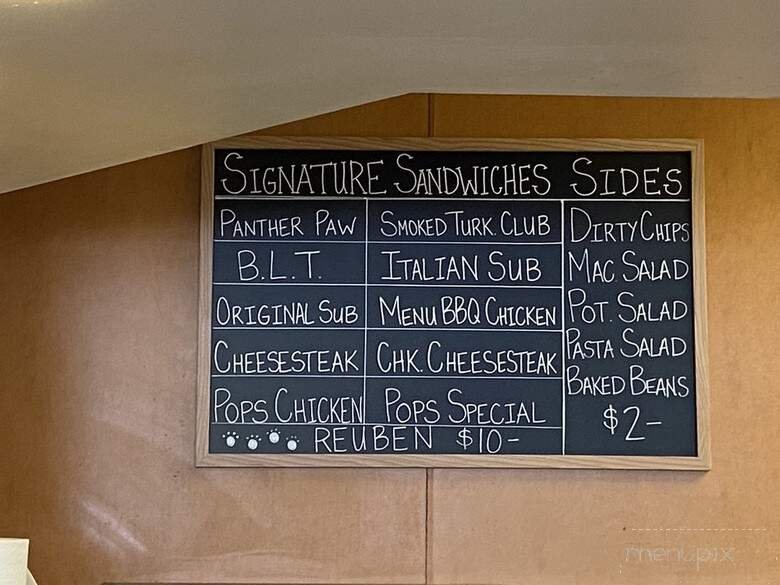 SIGNATURE SANDWICHES SIDES
PANTHER PAW SMOKED TURK. CLUB DIRTY CHIPS
B.L.T. ITALIAN SUB MAC. SALAD
ORIGINAL SUB MENU BBQ CHICKEN POT. SALAD
CHEESESTEAK CHK. CHEESESTEAK PASTA SALAD
POPS CHICKEN POPS SPECIAL BAKED BEANS
REUBEN $10- $2-
menupix